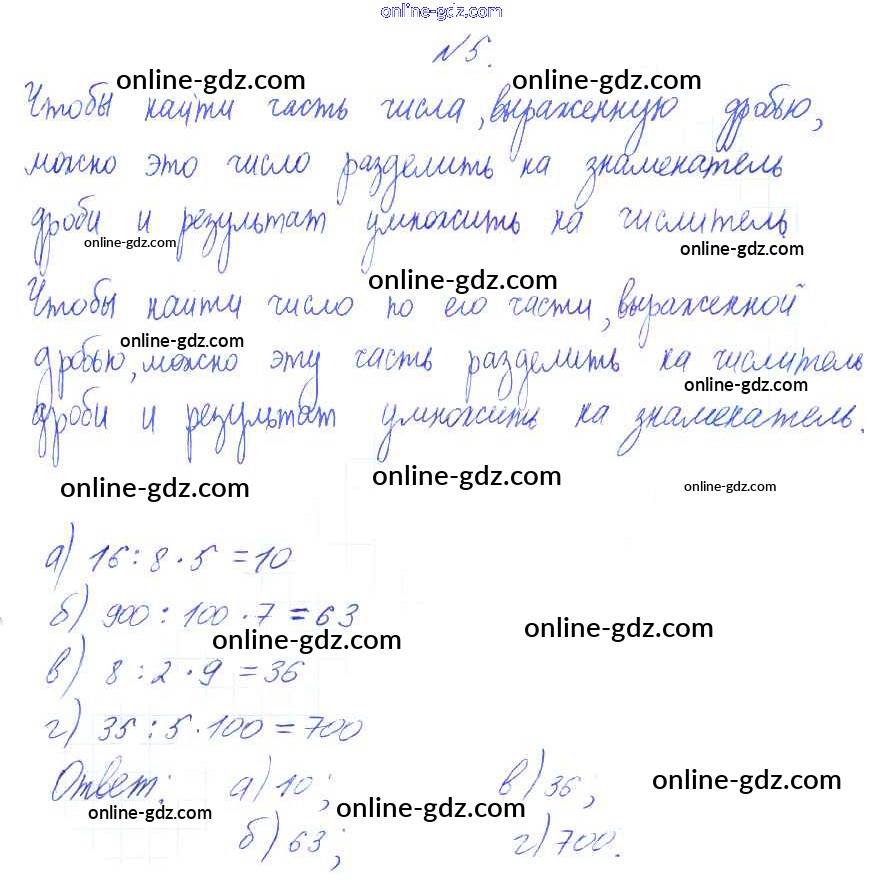 online-gdz.com
№5.
online-gdz.com online-gdz.com
Чтобы найти часть числа, выраженную дробью,
можно это число разделить на знаменатель
дроби и результат умножить на числитель.
online-gdz.com online-gdz.com
online-gdz.com
Чтобы найти число по его части, выраженной
online-gdz.com
дробью, можно эту часть разделить на числитель
online-gdz.com
дроби и результат умножить на знаменатель.
online-gdz.com online-gdz.com online-gdz.com
а) 16 : 8 · 5 = 10
б) 900 : 100 · 7 = 63
online-gdz.com online-gdz.com
в) 8 : 2 · 9 = 36
г) 35 : 5 · 100 = 700
Ответ: а) 10; в) 36;
online-gdz.com online-gdz.com online-gdz.com
б) 63; г) 700.